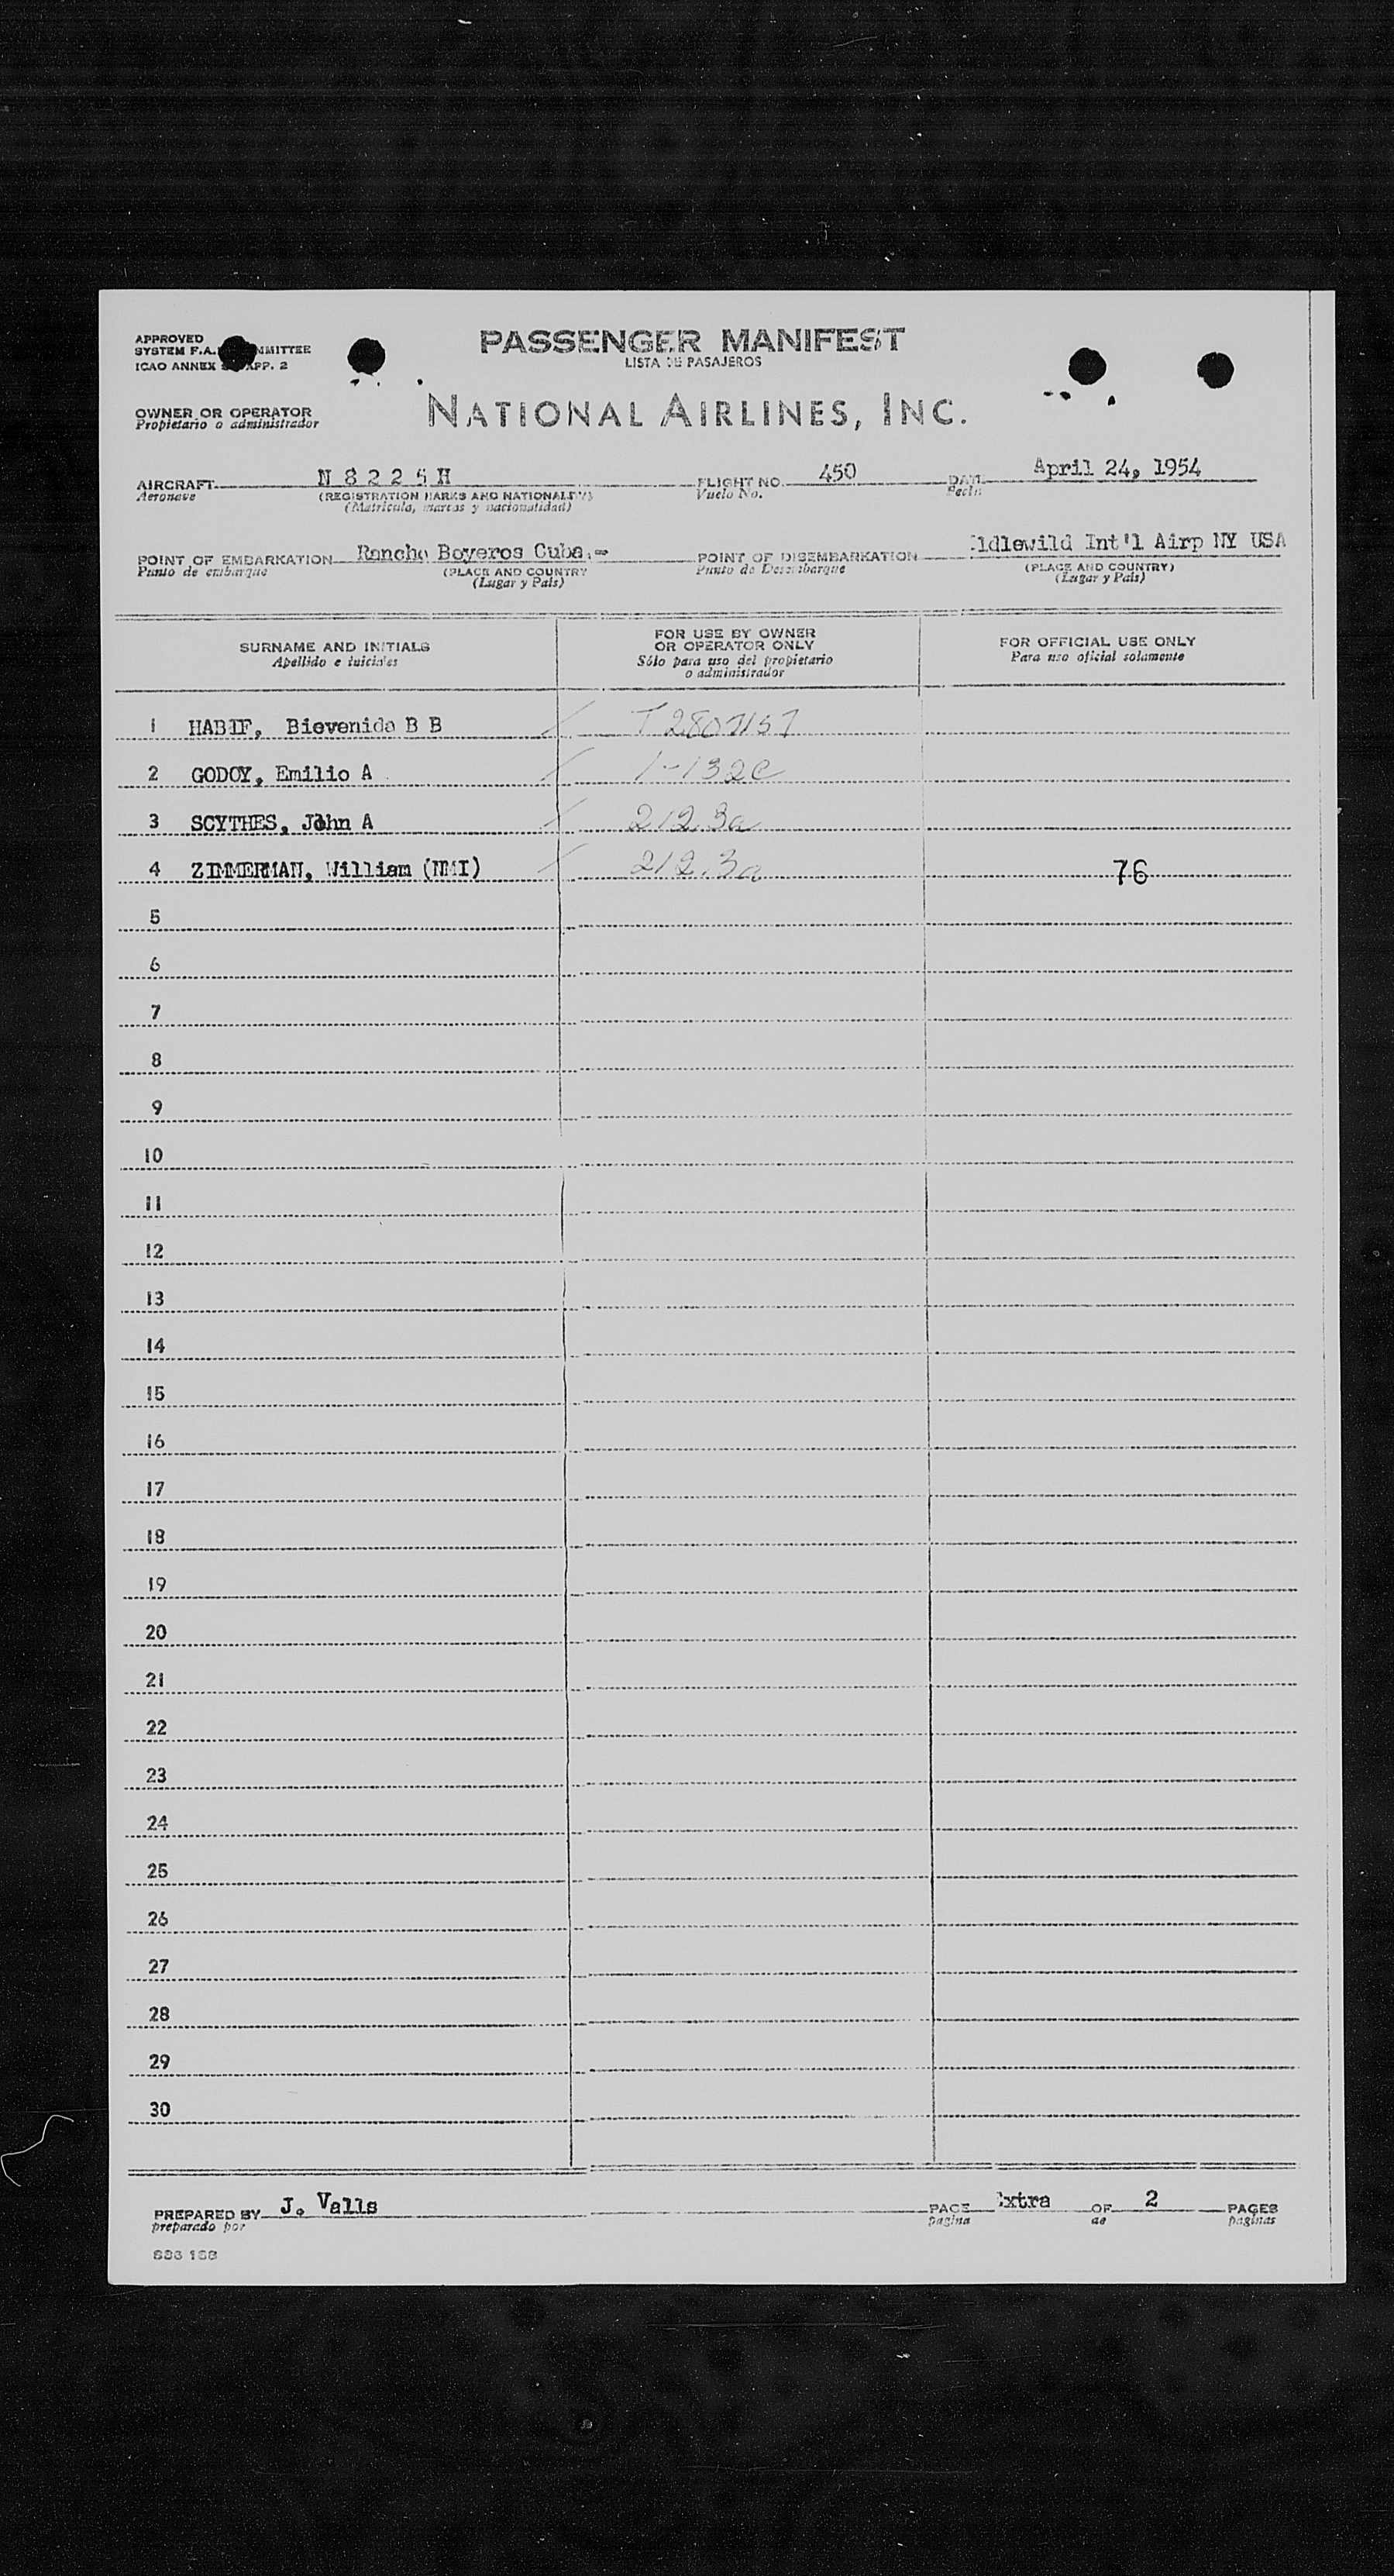 PASSENGER MANIFEST
LISTA DE PASAJEROS
APPROVED
SYSTEM F.A.
ICAO ANNEX APP. 2
OWNER OR OPERATOR
Propietario o administrador
NATIONAL AIRLINES, INC.
AIRCRAFT N 8 2 2 5 H FLIGHT NO. 450 DATE April 24, 1954
Aeronave (REGISTRATION MARKS AND NATIONALITY) Vuelo No. Fecha
(Matrícula, marcas y nacionalidad)
POINT OF EMBARKATION Rancho Boyeros Cuba.- POINT OF DISEMBARKATION Idlewild Int'l Airp NY USA
Punto de embarque (PLACE AND COUNTRY Punto de Desembarque (PLACE AND COUNTRY)
(Lugar y País) (Lugar y País)
SURNAME AND INITIALS FOR USE BY OWNER OR OPERATOR ONLY FOR OFFICIAL USE ONLY
Apellido e iniciales Sólo para uso del propietario o administrador Para uso oficial solamente
1 HABIF, Bievenida B B / T 2807157
2 GODOY, Emilio A / 1-132C
3 SCYTHES, John A / 212.3a
4 ZIMMERMAN, William (NMI) / 212.3a 76
5
6
7
8
9
10
11
12
13
14
15
16
17
18
19
20
21
22
23
24
25
26
27
28
29
30
PREPARED BY J. Valls PAGE Extra OF 2 PAGES
preparado por pagina de paginas